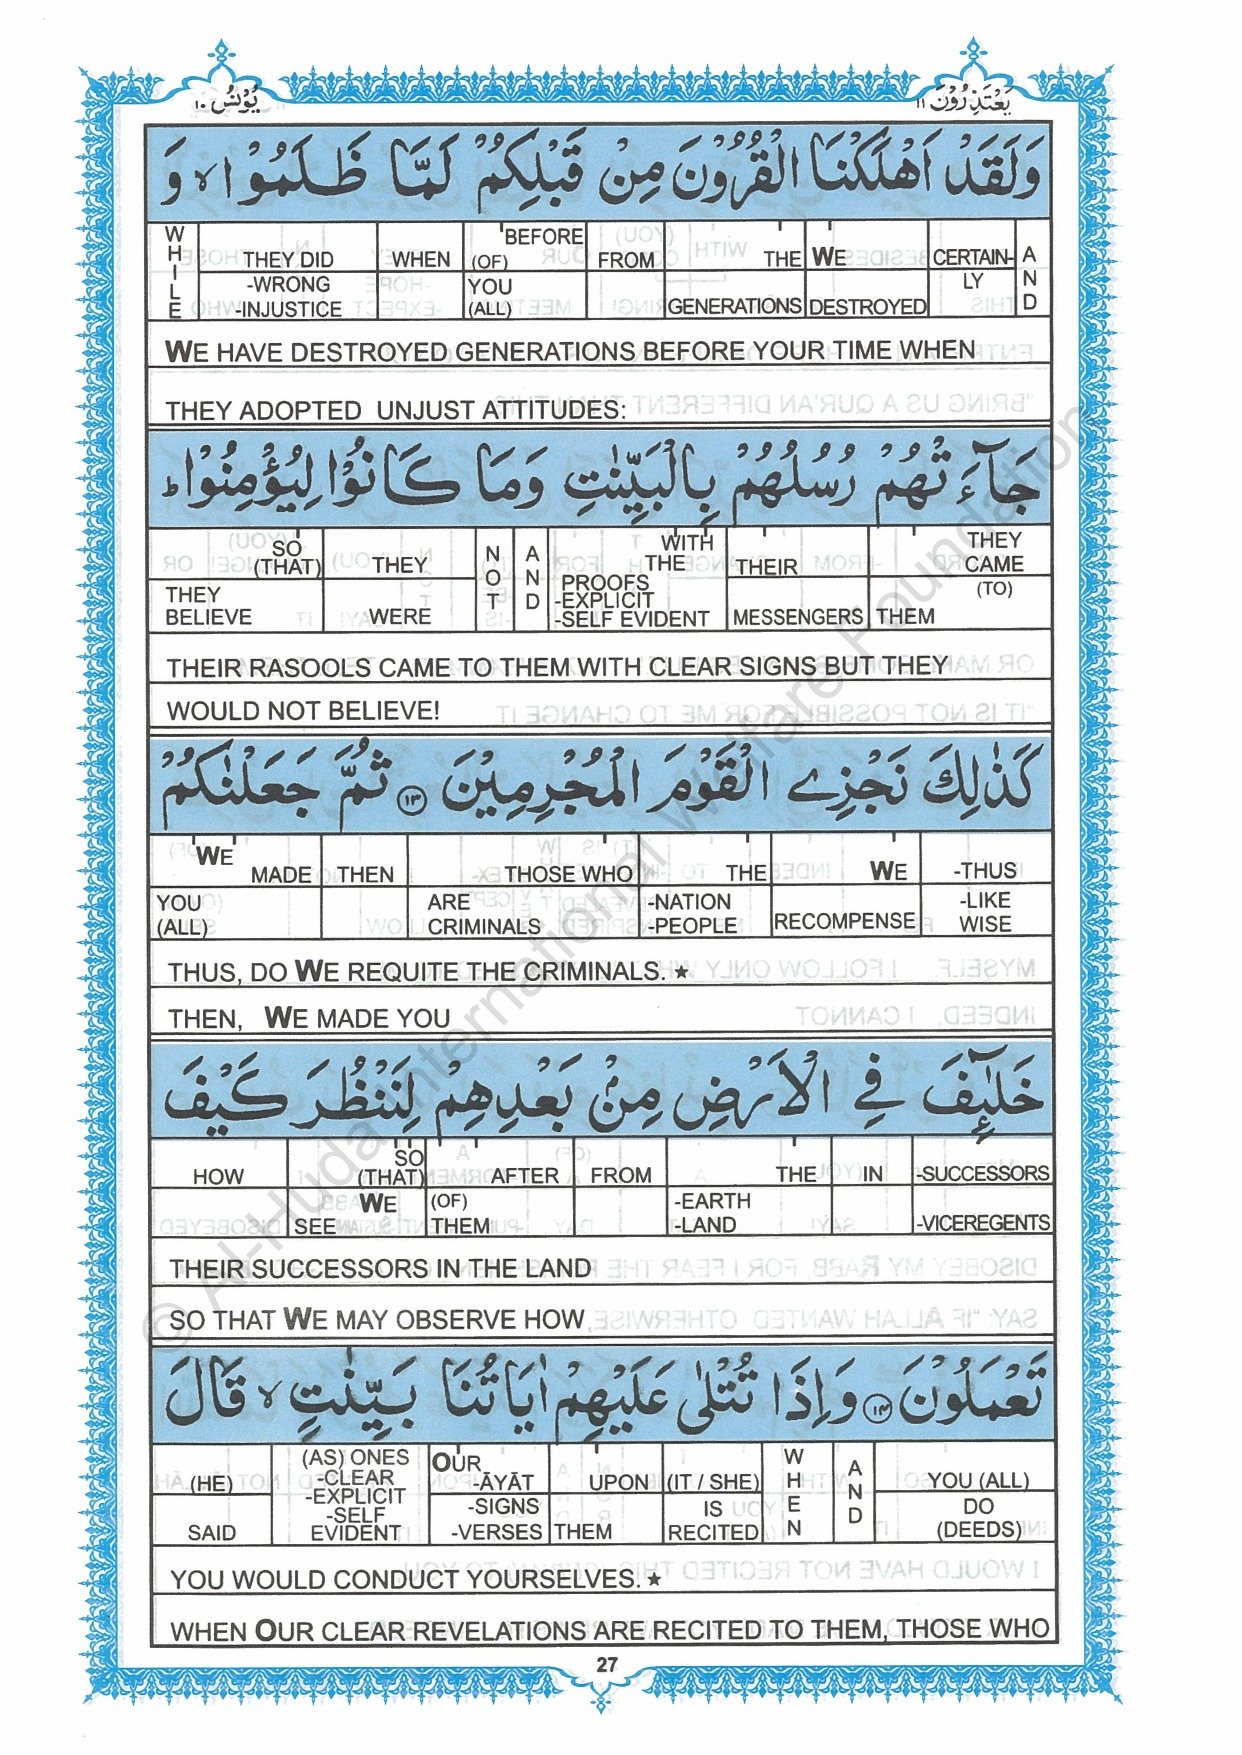 يَعْتَذِرُوْنَ ١١
يُوْنُسُ ١٠
وَلَقَدْ اَهْلَكْنَا الْقُرُوْنَ مِنْ قَبْلِكُمْ لَمَّا ظَلَمُوْا ۙ وَ
WHILE THEY DID -WRONG -INJUSTICE WHEN BEFORE (OF) YOU (ALL) FROM THE GENERATIONS WE DESTROYED CERTAIN-LY AND
WE HAVE DESTROYED GENERATIONS BEFORE YOUR TIME WHEN
THEY ADOPTED UNJUST ATTITUDES:
جَآءَتْهُمْ رُسُلُهُمْ بِالْبَيِّنٰتِ وَمَا كَانُوْا لِيُؤْمِنُوْا ؕ
SO (THAT) THEY BELIEVE THEY WERE NOT AND WITH THE PROOFS -EXPLICIT -SELF EVIDENT THEIR MESSENGERS THEY CAME (TO) THEM
THEIR RASOOLS CAME TO THEM WITH CLEAR SIGNS BUT THEY
WOULD NOT BELIEVE!
كَذٰلِكَ نَجْزِى الْقَوْمَ الْمُجْرِمِيْنَ ١٣ ثُمَّ جَعَلْنٰكُمْ
WE MADE YOU (ALL) THEN THOSE WHO ARE CRIMINALS THE -NATION -PEOPLE WE RECOMPENSE -THUS -LIKE WISE
THUS, DO WE REQUITE THE CRIMINALS. ★
THEN, WE MADE YOU
خَلٰٓئِفَ فِى الْاَرْضِ مِنْۢ بَعْدِهِمْ لِنَنْظُرَ كَيْفَ
HOW SO (THAT) WE SEE AFTER (OF) THEM FROM THE -EARTH -LAND IN -SUCCESSORS -VICEREGENTS
THEIR SUCCESSORS IN THE LAND
SO THAT WE MAY OBSERVE HOW
تَعْمَلُوْنَ ١٤ وَاِذَا تُتْلٰى عَلَيْهِمْ اٰيَاتُنَا بَيِّنٰتٍ ۙ قَالَ
(HE) SAID (AS) ONES -CLEAR -EXPLICIT -SELF EVIDENT OUR -ĀYĀT -SIGNS -VERSES UPON THEM (IT / SHE) IS RECITED WHEN AND YOU (ALL) DO (DEEDS)
YOU WOULD CONDUCT YOURSELVES. ★
WHEN OUR CLEAR REVELATIONS ARE RECITED TO THEM, THOSE WHO
27
© Al-Huda International Welfare Foundation